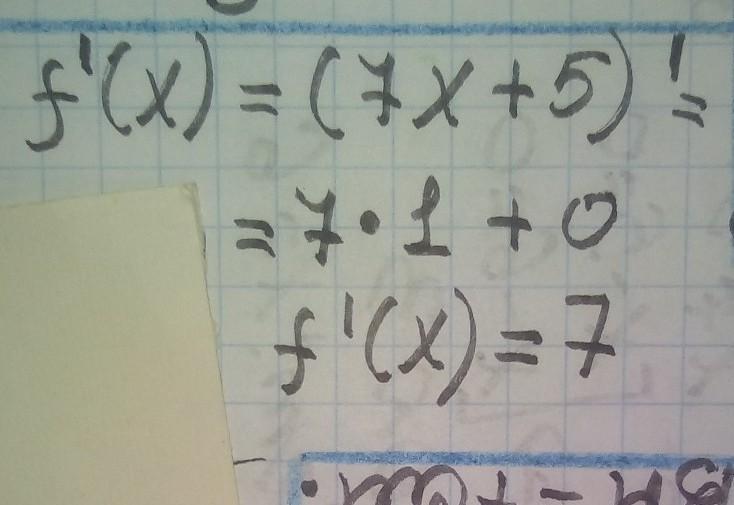 f'(x) = (7x + 5)' =
= 7 · 1 + 0
f'(x) = 7